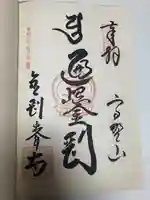 奉拝
高野山
遍照金剛
金剛峯寺